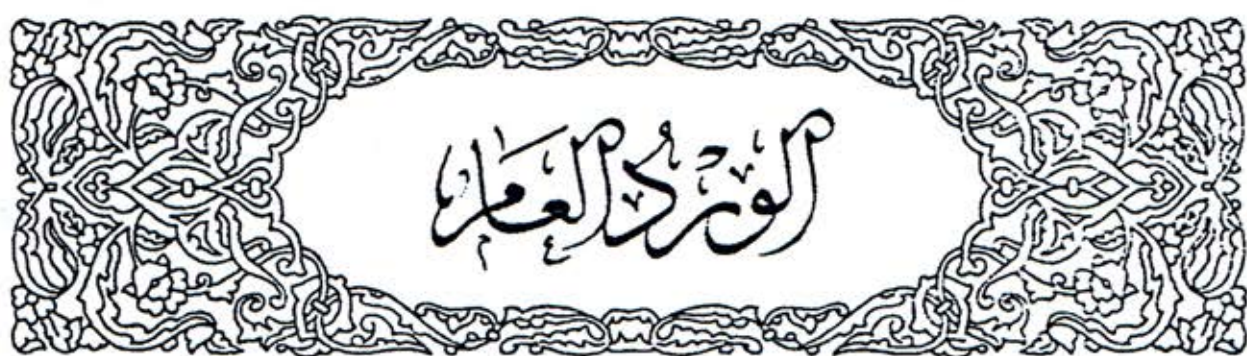 الورد العام